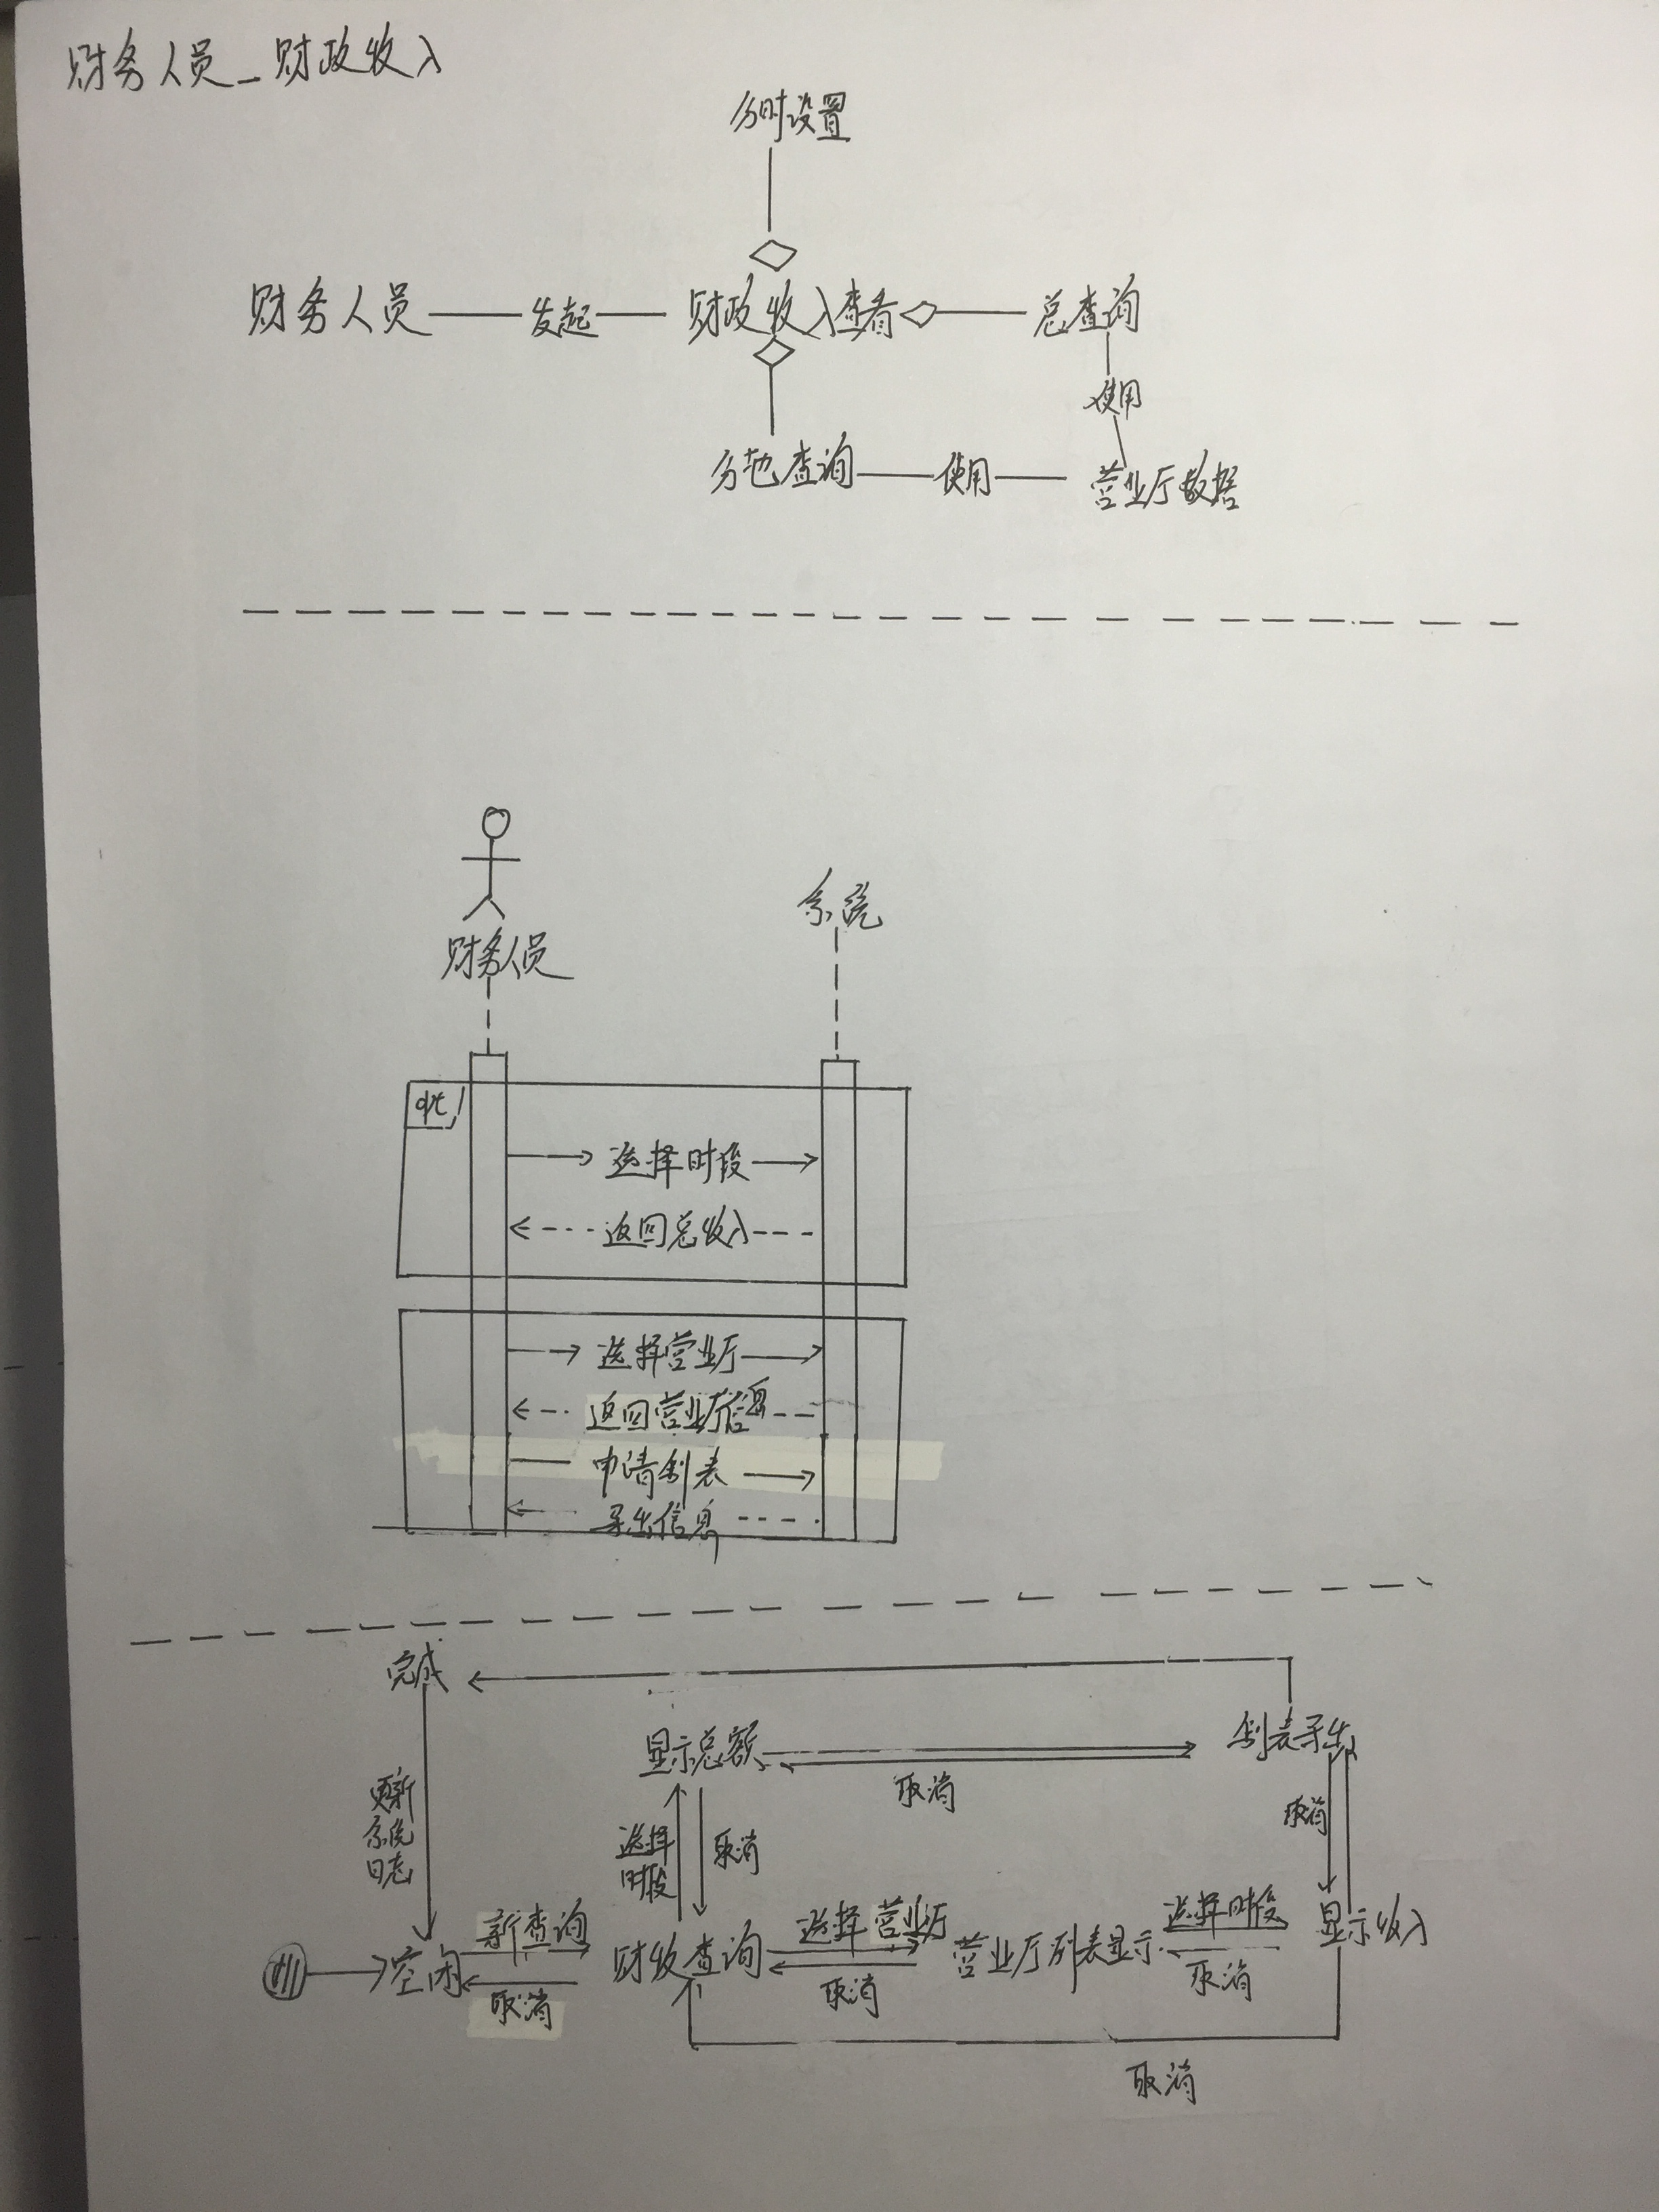 财务人员_财政收入
分时设置
财务人员 发起 财政收入查看 总查询
使用
分地查询 使用 营业厅数据
系统
财务人员
opt
选择时段
返回总收入
选择营业厅
返回营业厅信息
申请制表
导出信息
完成
显示总额 制表导出
取消
更新系统日志
选择时段
取消
取消
新查询 选择营业厅 选择时段
空闲 财收查询 营业厅列表显示 显示收入
取消 取消 取消
取消